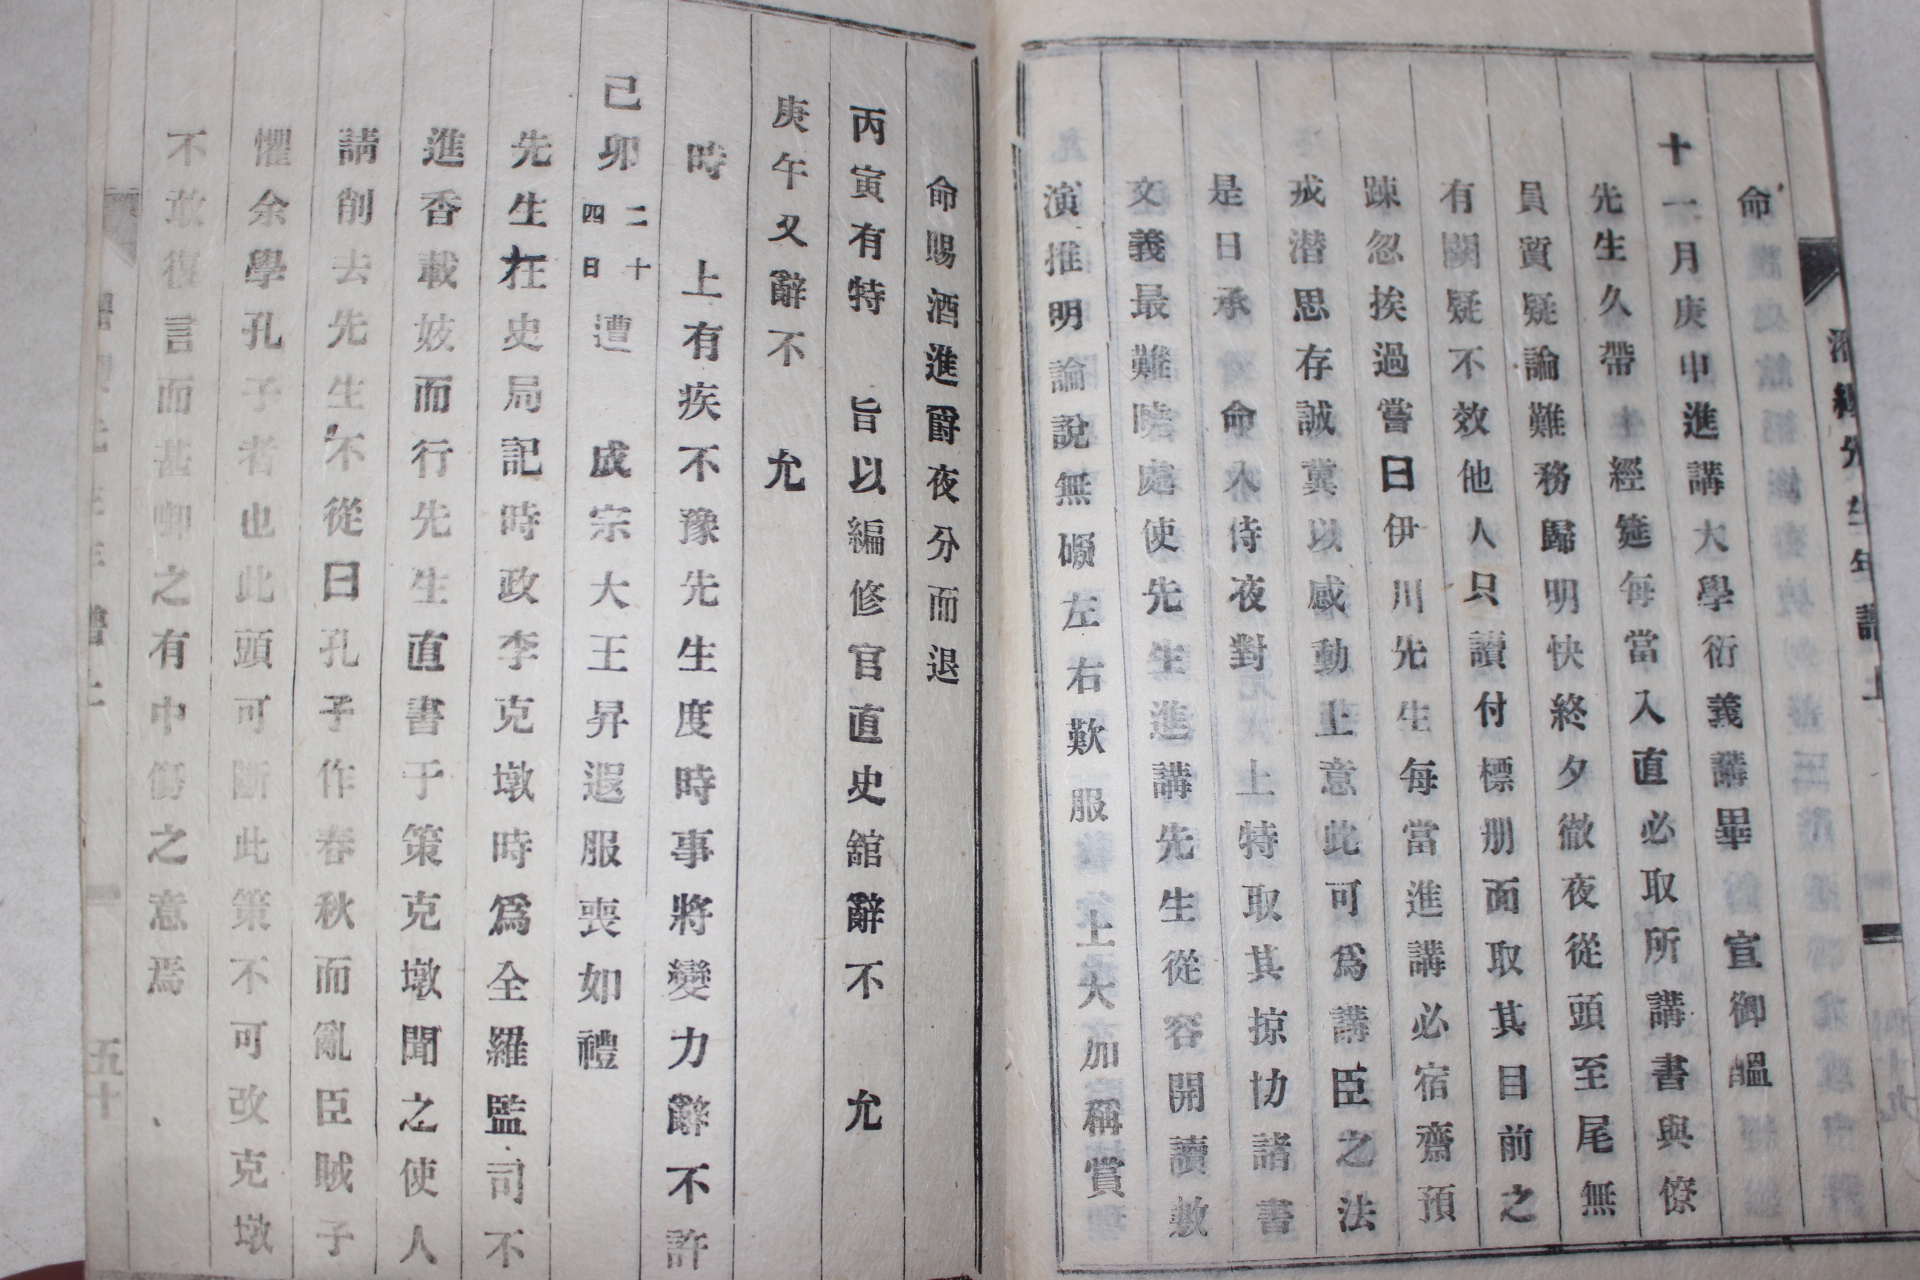 命
十一月庚申進講大學衍義講畢 宣御醞
先生久帶經筵每當入直必取所講書與僚
員質疑論難務歸明快終夕徹夜從頭至尾無
有闕疑不效他人只讀付標册面取其目前之
踈忽挨過嘗曰伊川先生每當進講必宿齋預
戒潛思存誠冀以感動上意此可爲講臣之法
是日承 命入侍夜對 上特取其掠功諸書
文義最難曉處使先生進講先生從容開讀敷
演推明論說無礙左右歎服 上大加稱賞
命賜酒進爵夜分而退
丙寅有特 旨以編修官直史舘辭不 允
庚午又辭不 允
時 上有疾不豫先生度時事將變力辭不許
己卯二十四日遭 成宗大王昇遐服喪如禮
先生在史局記時政李克墩時爲全羅監司不
進香載妓而行先生直書于策克墩聞之使人
請削去先生不從曰孔子作春秋而亂臣賊子
懼余學孔子者也此頭可斷此策不可改克墩
不敢復言而甚啣之有中傷之意焉
五十